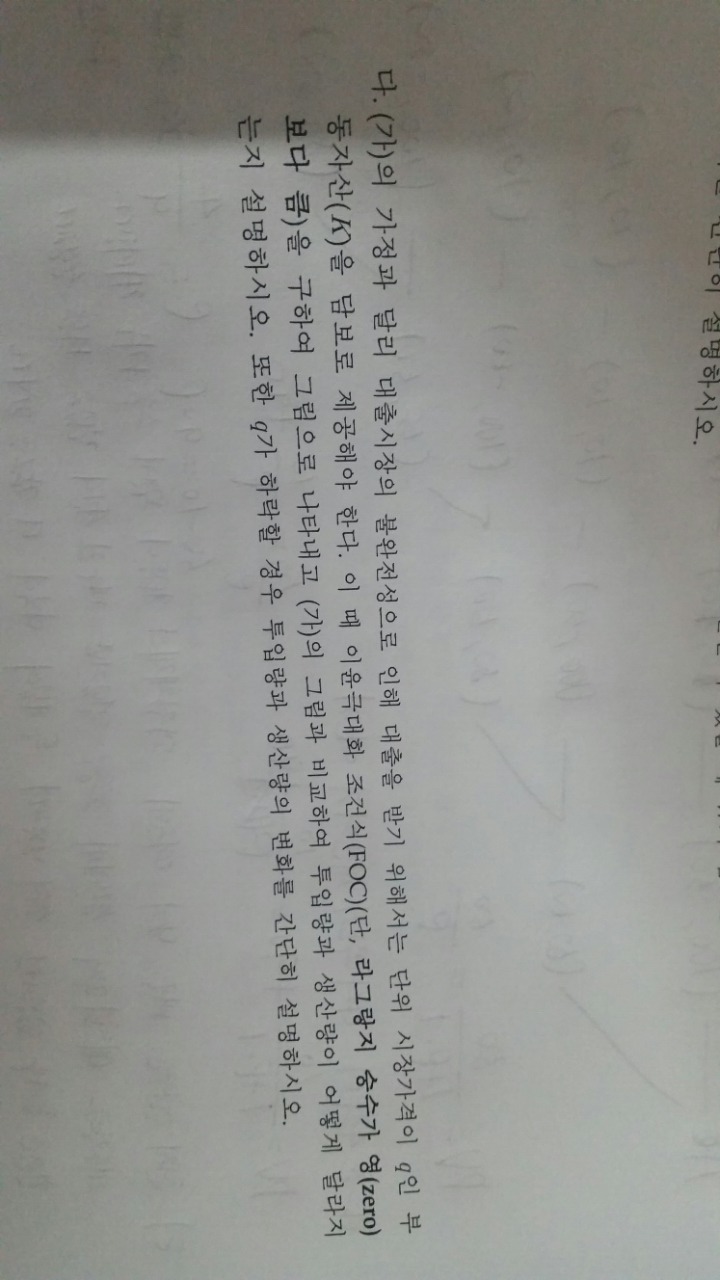 설명하시오.
다. (가)의 가정과 달리 대출시장의 불완전성으로 인해 대출을 받기 위해서는 단위 시장가격이 q인 부
동자산(K)을 담보로 제공해야 한다. 이 때 이윤극대화 조건식(FOC)(단, 라그랑지 승수가 영(zero)
보다 큼)을 구하여 그림으로 나타내고 (가)의 그림과 비교하여 투입량과 생산량이 어떻게 달라지
는지 설명하시오. 또한 q가 하락할 경우 투입량과 생산량의 변화를 간단히 설명하시오.